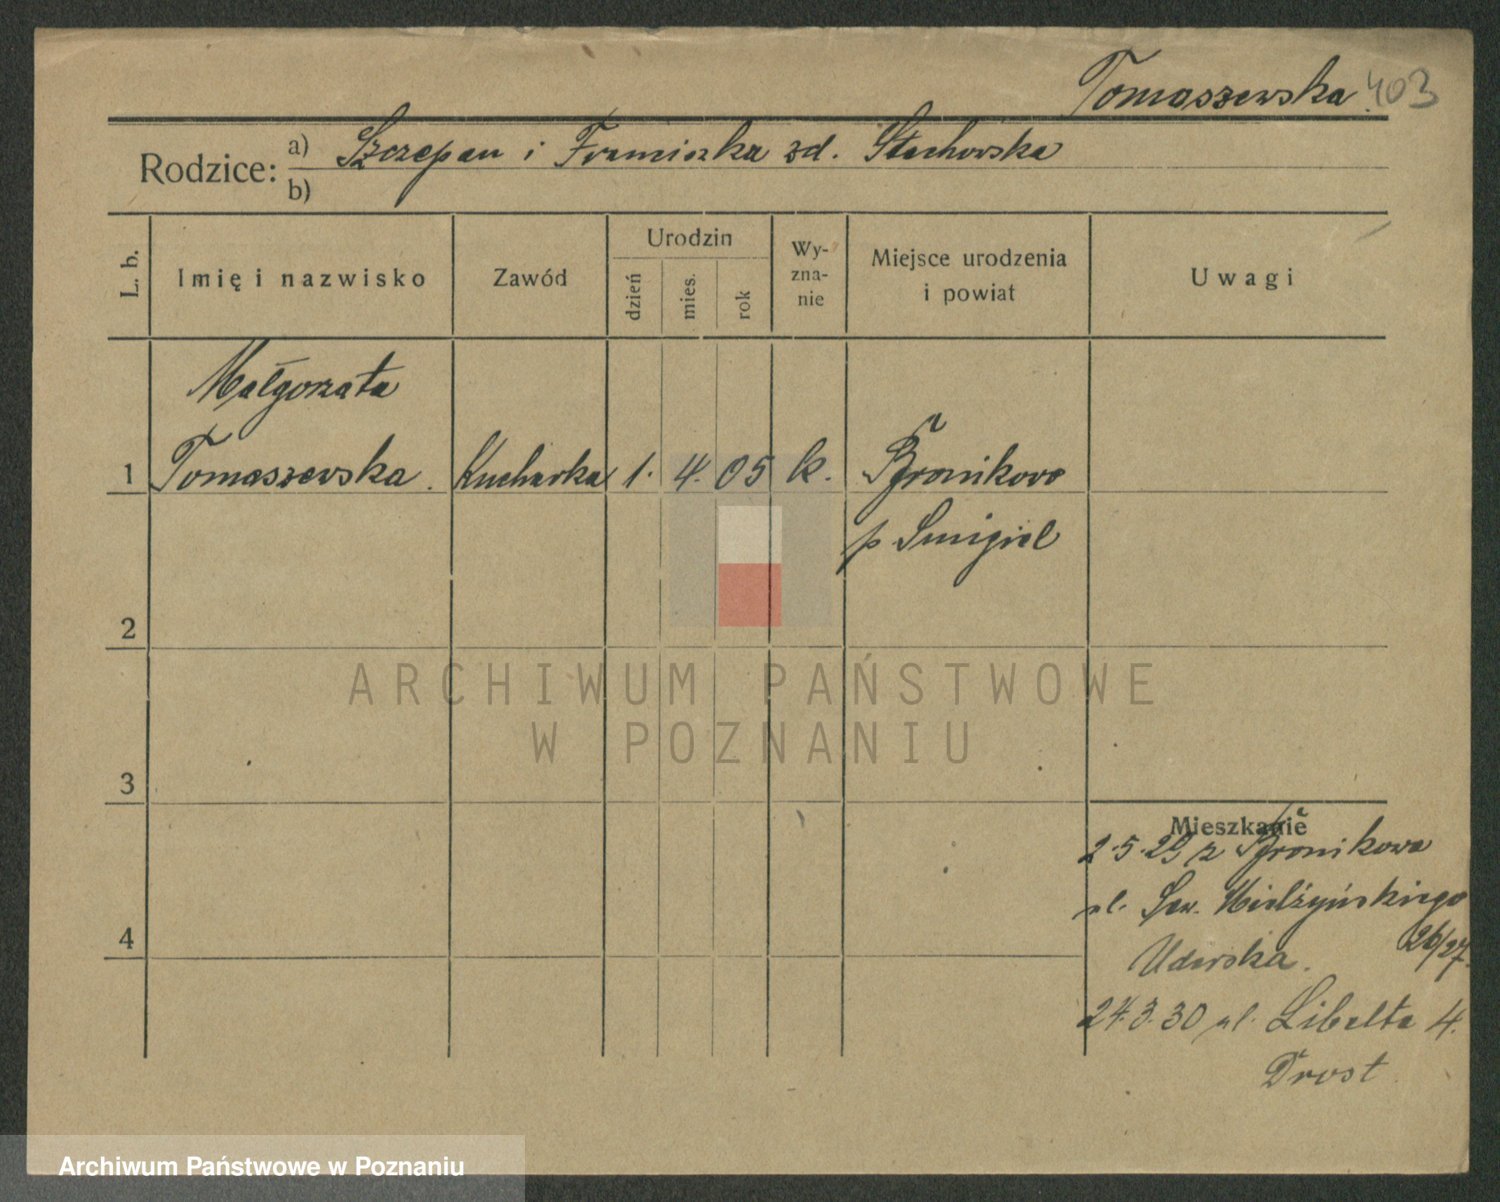 Tomaszewska 403
Rodzice: a) Szczepan i Franciszka zd. Stachowska
b)
L. b. Imię i nazwisko Zawód Urodzin dzień mies. rok Wy-zna-nie Miejsce urodzenia i powiat Uwagi
Małgorzata
1 Tomaszewska. Kucharka 1. 4. 05 k. Bronikowo
p Smigiel
2
ARCHIWUM PAŃSTWOWE
W POZNANIU
3
Mieszkanie
2.5.29 z Bronikowa
ul. Sew. Mielżyńskiego
26/27.
4
Uderska.
24.3.30 ul. Libelta 4.
Drost
Archiwum Państwowe w Poznaniu